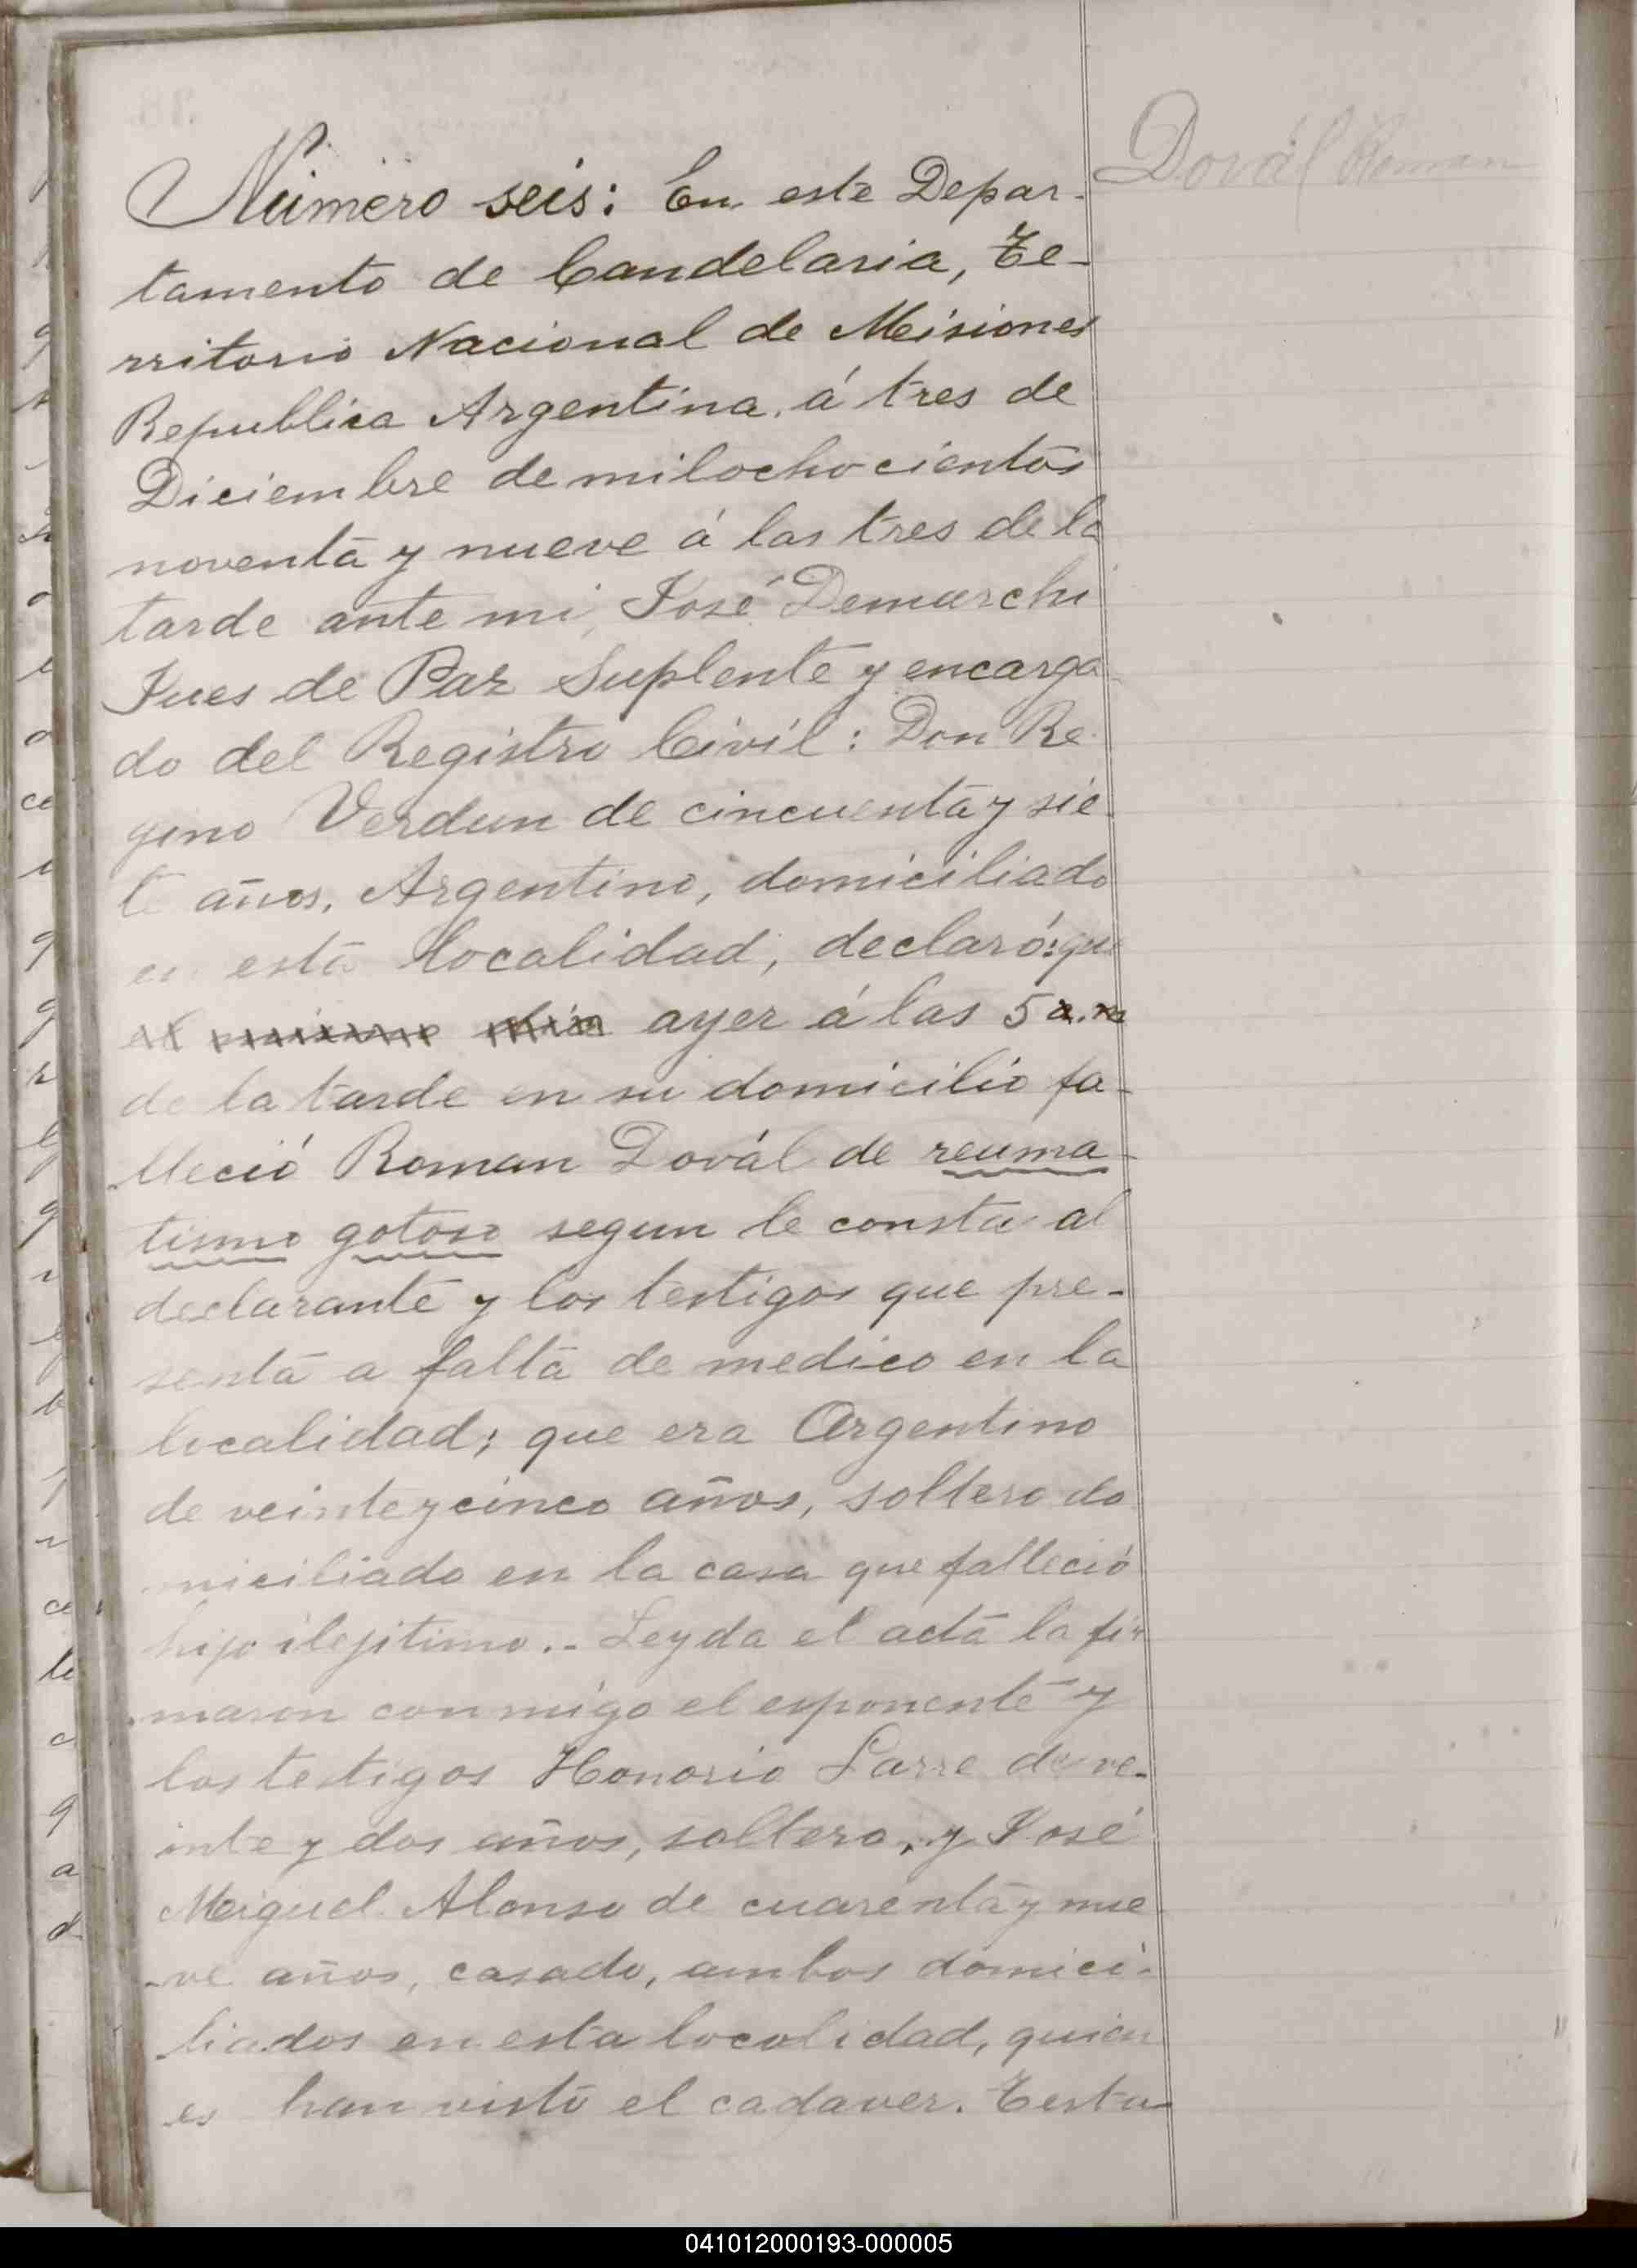 Dovál Roman
Número seis: En este Depar-
tamento de Candelaria, Te-
rritorio Nacional de Misiones
Republica Argentina, á tres de
Diciembre de milochocientos
noventa y nueve á las tres de la
tarde ante mi, José Demarchi
Jues de Paz Suplente y encarga
do del Registro Civil: Don Re-
gino Verdun de cincuenta y sie-
te años, Argentino, domiciliado
en esta localidad, declaró: que
el mismo dia ayer á las 5 a.m
de la tarde en su domicilio fa-
lleció Roman Dovál de reuma-
tismo gotoso segun le consta al
declarante y los testigos que pre-
senta a falta de medico en la
localidad; que era Argentino
de veinteycinco años, soltero do
miciliado en la casa que falleció
hijo ilejitimo.- Leyda el acta la fir
maron conmigo el esponente y
los testigos Honorio Larre de ve-
inte y dos años, soltero, y José
Miguel Alonso de cuarenta y nue
-ve años, casado, ambos domici-
liados en esta localidad, quien
es han visto el cadaver. Testa-
041012000193-000005